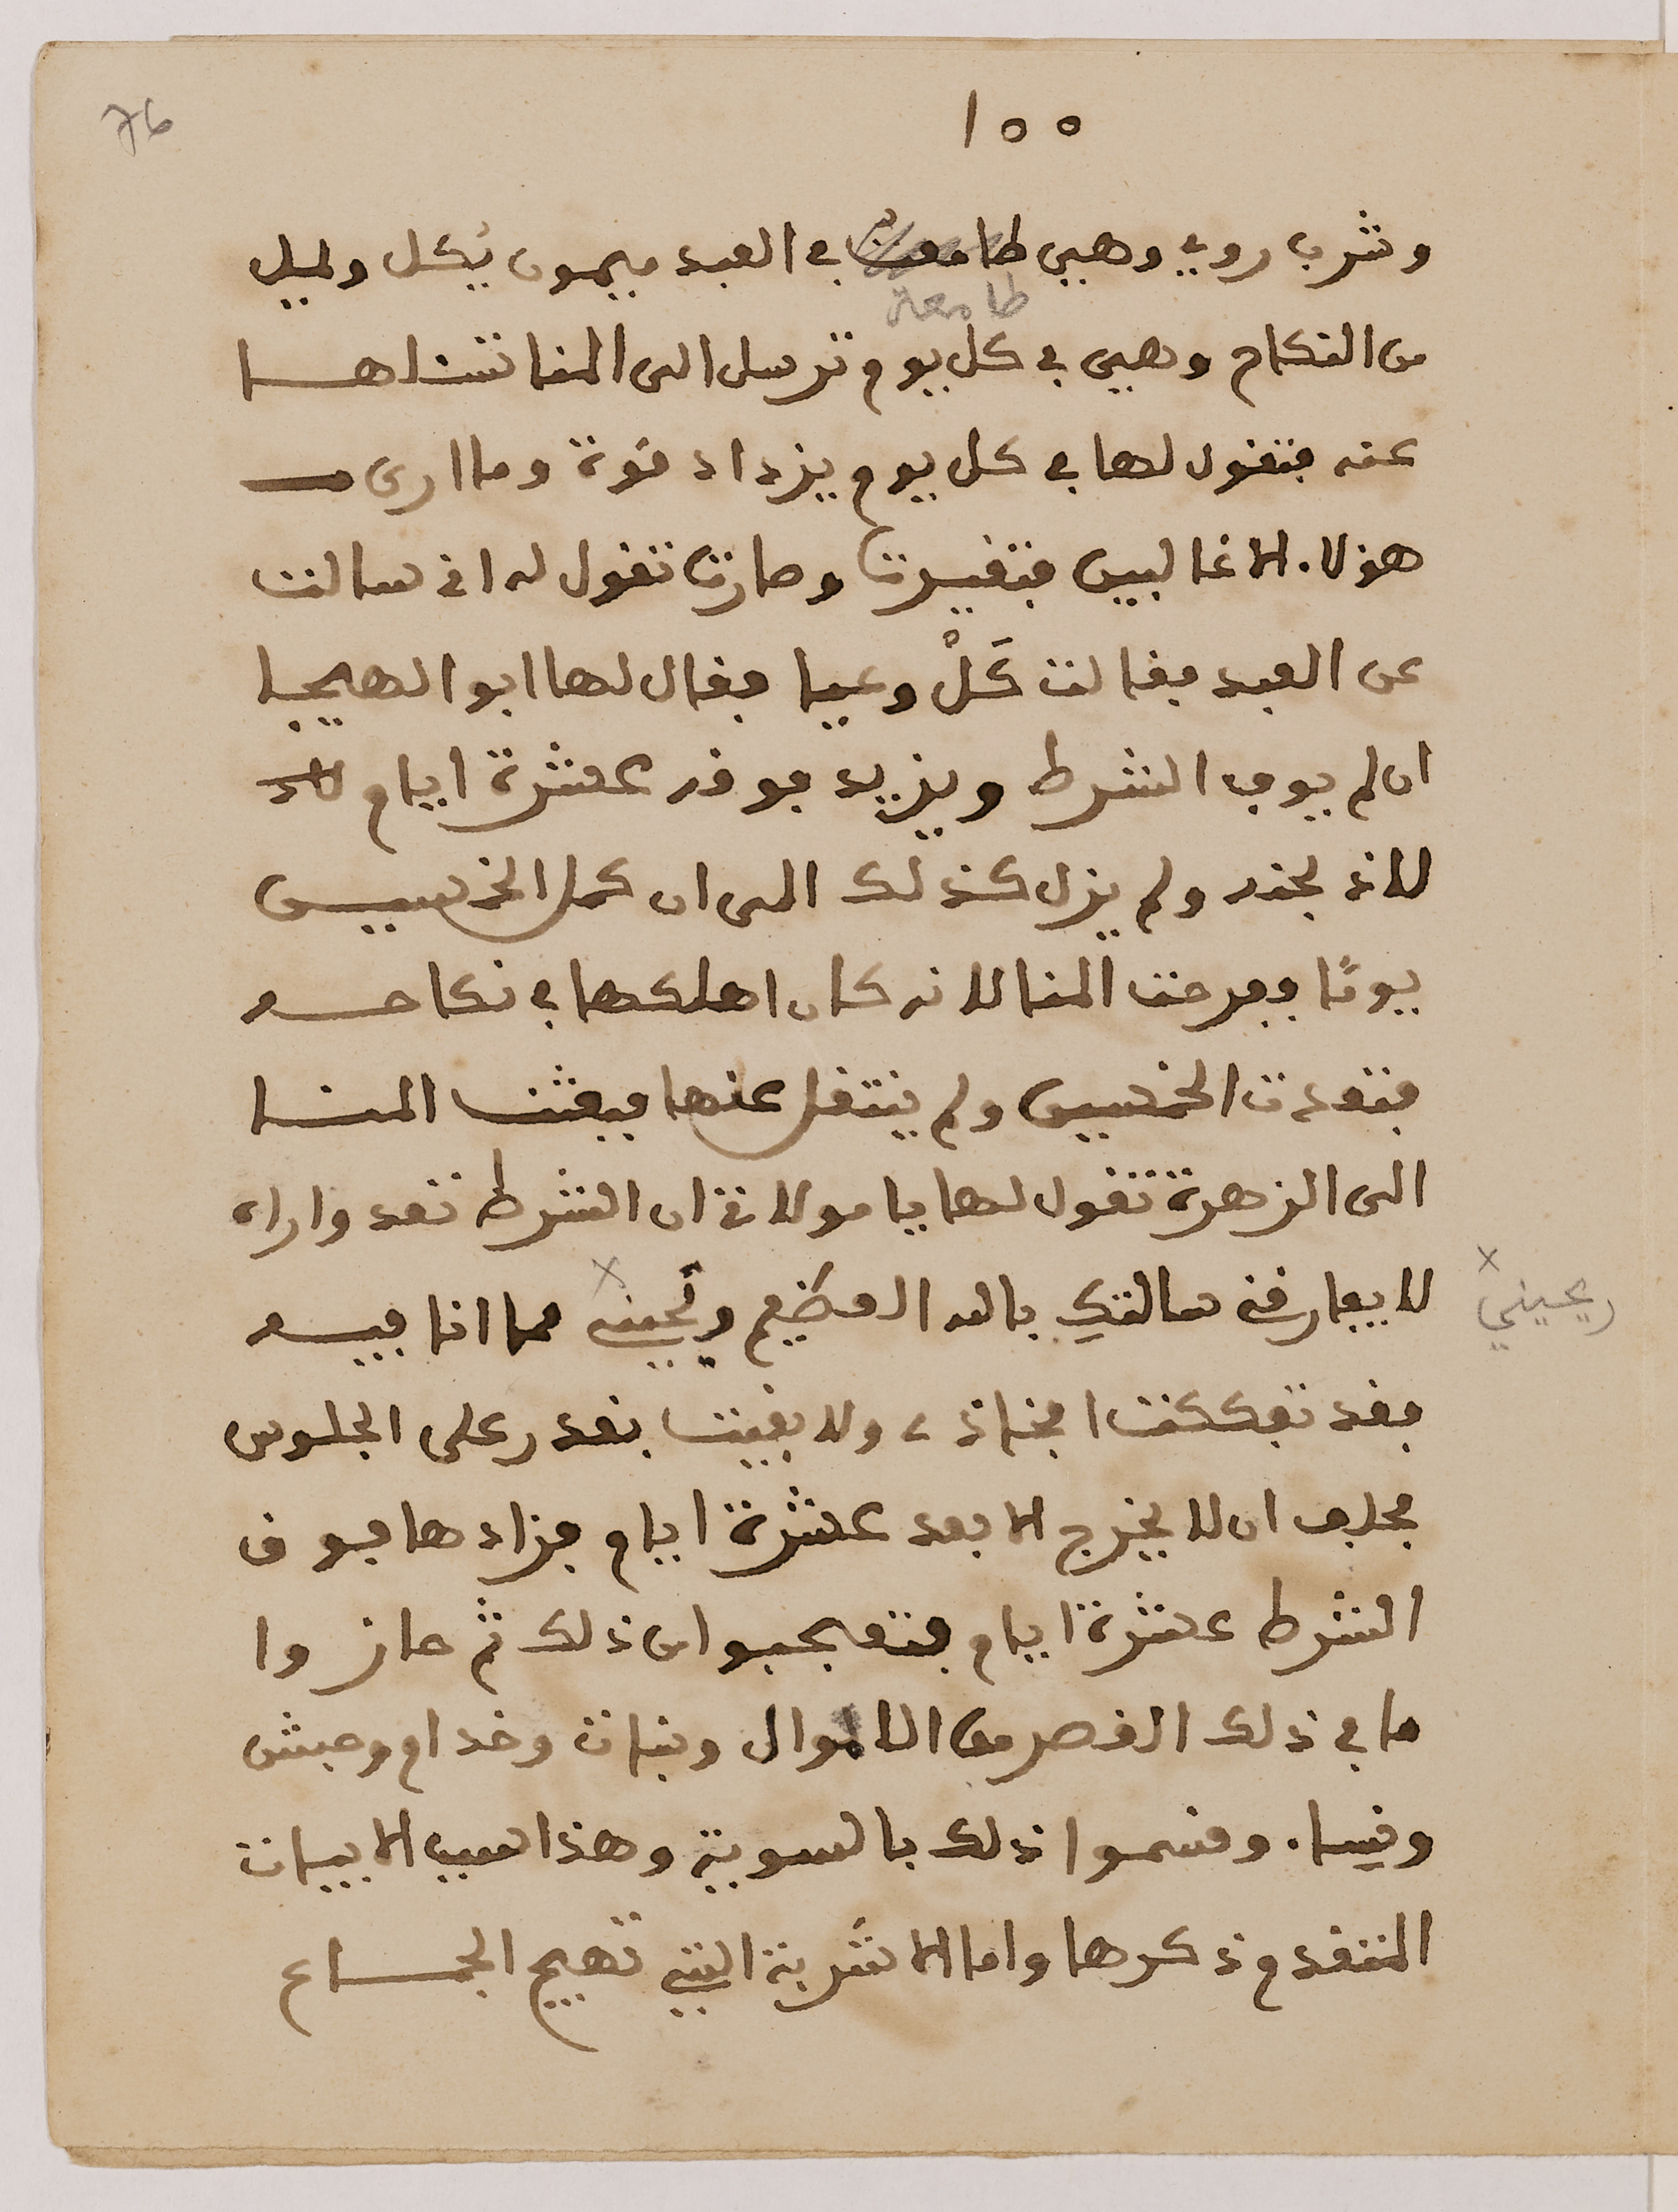 76
١٥٥
وشرب روي وهيي طامعة في العبد ميمون يكل ولميل
طامعة
من النكاح وهيي في كل يوم ترسل الى المنا تنشداها
عنه فتقول لها في كل يوم يزداد قوة وما ارى
هولاء الا غالبين فتغيرت وصارت تقول له اني سالت
عن العبد فقالت كَلْ وعيا فقال لها ابو الهيجا
ان لم يوف الشرط ويزيد فوقه عشرة ايام
للاذلجنه ولم يزل كذلك الى ان كمل الخمسين
يومًا وفرحت المنا لانه كان اهلكها في نكاحه
فتعدت الخمسين ولم ينتقل عنها فبعثت المنا
الى الزهرة تقول لها يا مولاتي ان الشرط تعد واراه
لا يفارقني سالتك بالله العظيم ويحيني مما انا فيه
ريحيني
فقد تفككت افخاذي ولا بقيت نقدر على الجلوس
فحلف ان لا يخرج الا بعد عشرة ايام فزادها فوق
الشرط عشرة ايام فتعجبوا من ذلك ثم حازوا
ما في ذلك القصر من الاموال وبنات وخدام وحبش
ونساء وقسموا ذلك بالسوية وهذا سبب الابيات
المتقدم ذكرها واما الاشربة التي تهيج الجماع